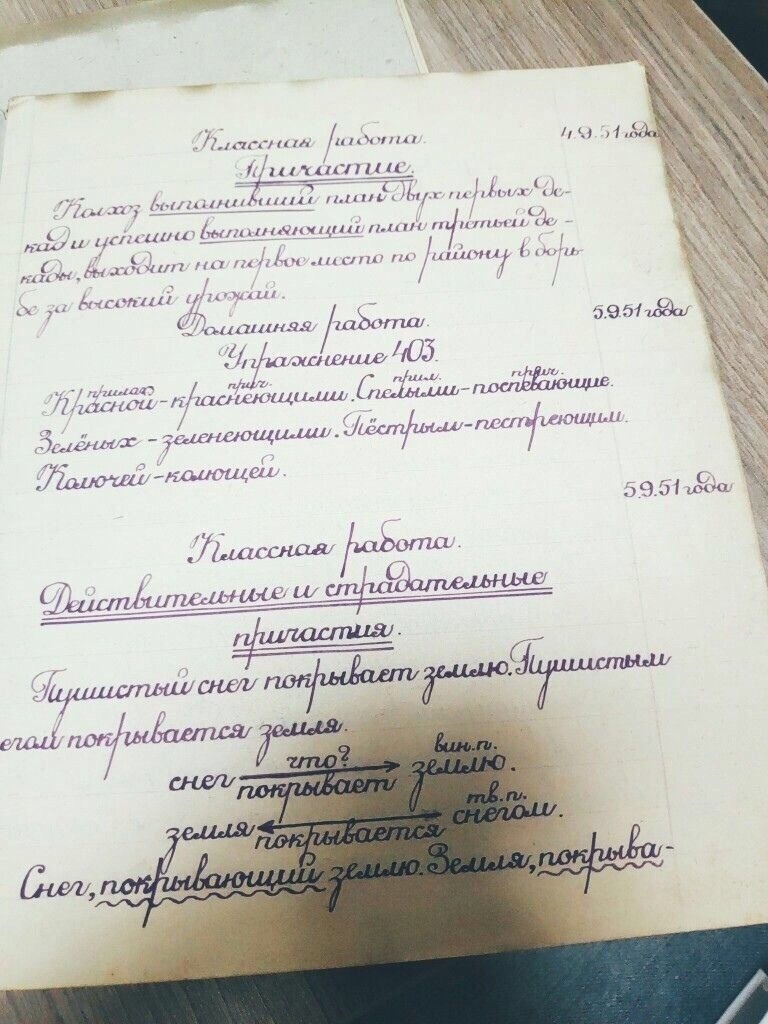 Классная работа. 4.9.51 года
Причастие.
Колхоз выполнивший план двух первых де-
кад и успешно выполняющий план третьей де-
кады, выходит на первое место по району в борь-
бе за высокий урожай.
Домашняя работа. 5.9.51 года
Упражнение 403.
прилаг. прич. прил. прич.
Красной - краснеющими. Спелыми - поспевающие.
Зелёных - зеленеющими. Пёстрым - пестреющим.
Колючей - колющей.
5.9.51 года
Классная работа.
Действительные и страдательные
причастия.
Пушистый снег покрывает землю. Пушистым
егом покрывается земля.
что? вин.п.
снег покрывает землю.
тв.п.
земля покрывается снегом.
Снег, покрывающий землю. Земля, покрыва-